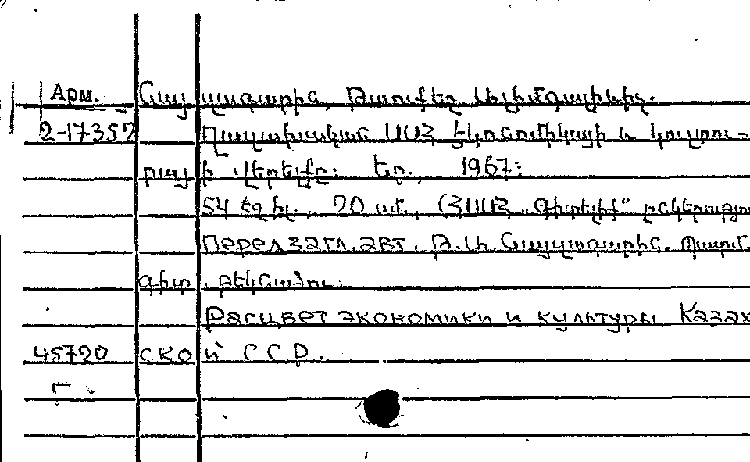 Арм.
2-17357 Ղազախական ՍՍՀ էկոնոմիկայի և կուլտու-
րայի վերելքը: Եր., 1967:
54 էջ իլ., 20 սմ, (ՀՍՍՀ „Գիտելիք“ ընկերությու
Перед загл. авт. Թ. Ա. պատմ.
գիտ. թեկնածու.
Расцвет экономики и культуры Казах
45720 ской ССР.